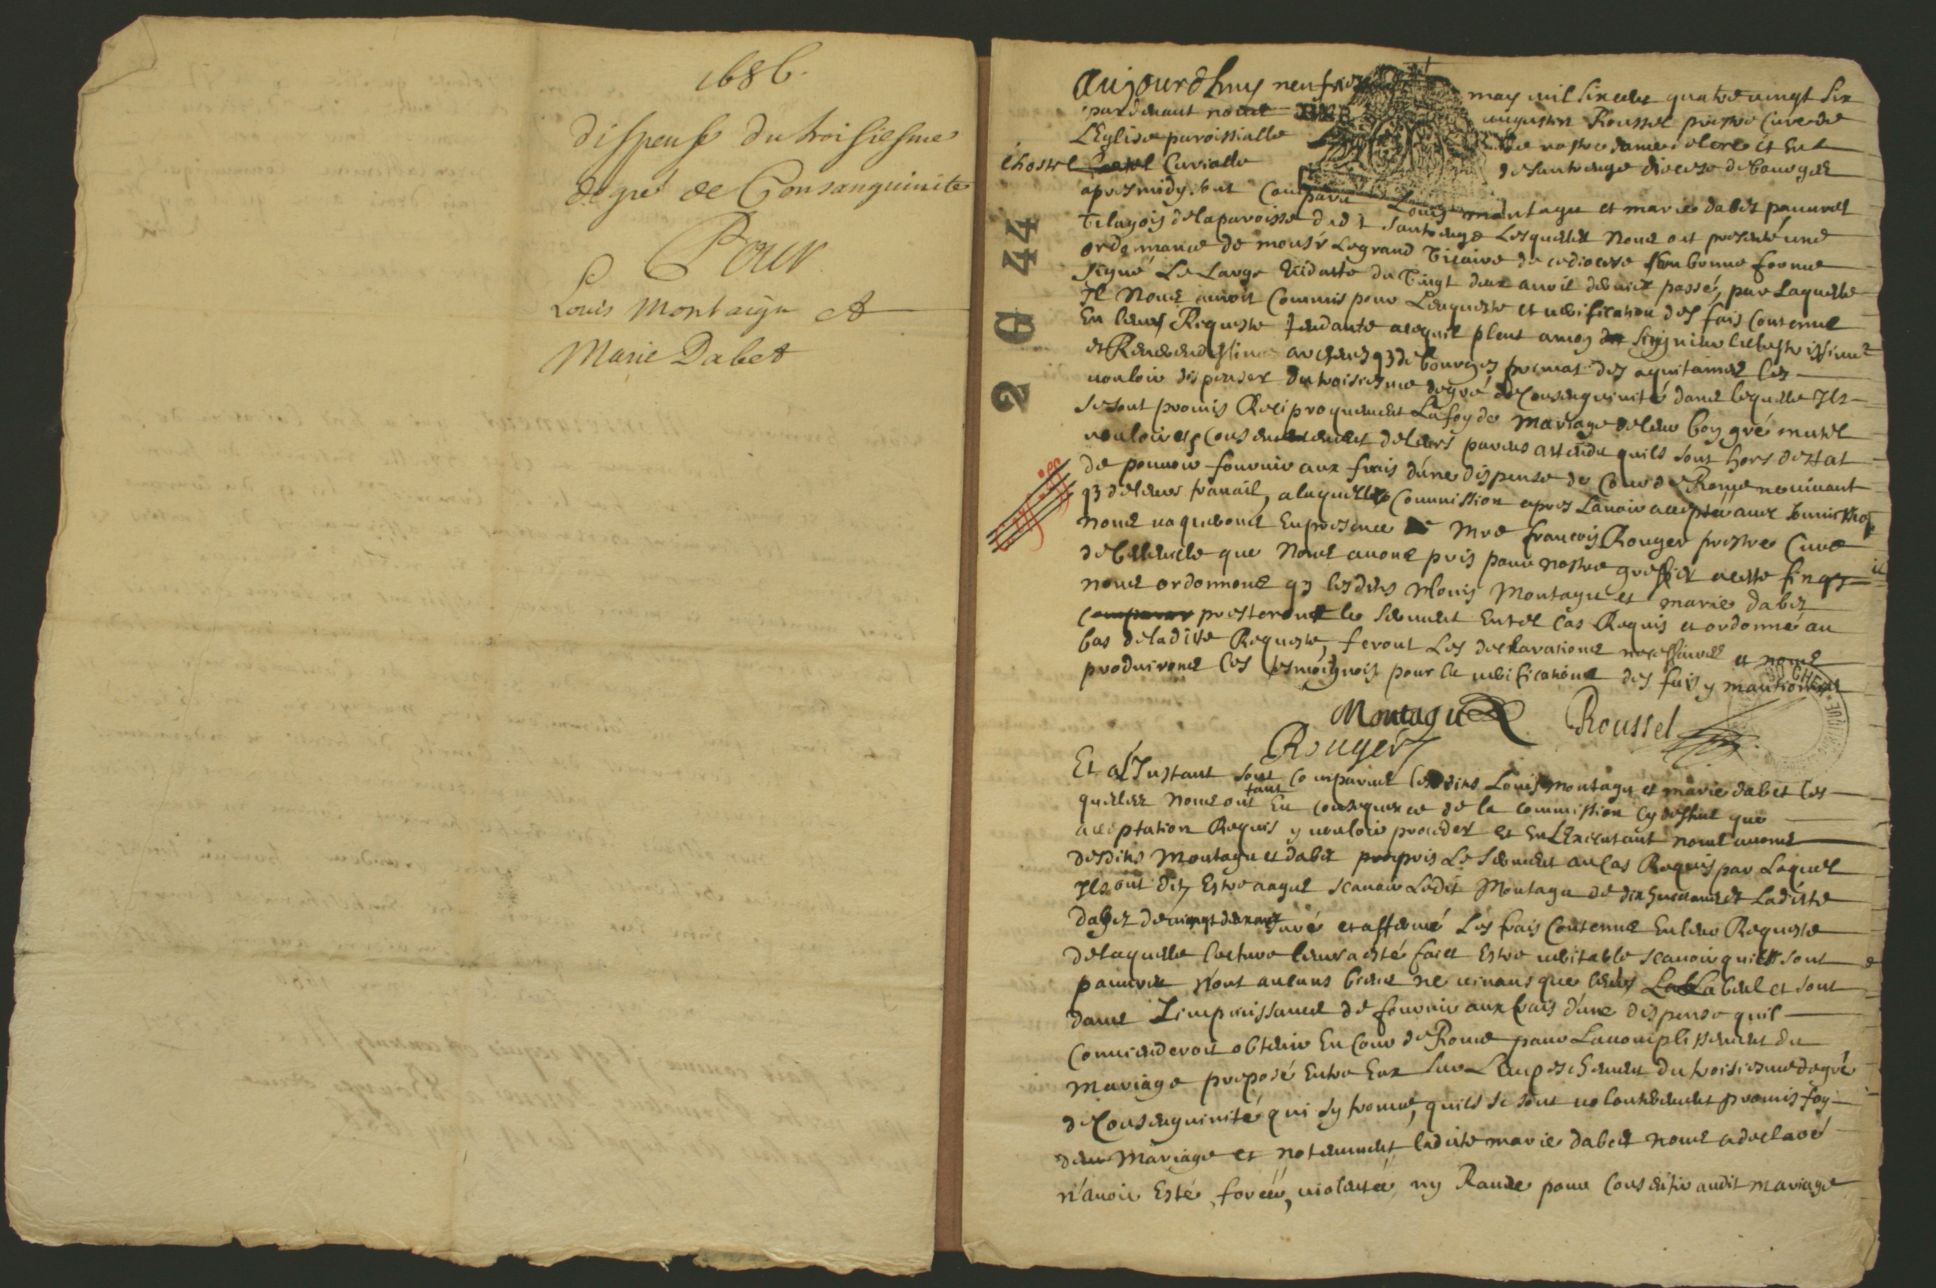 1686.
dispense du troisiesme
degré de Consanguinite
Pour
Louis Montaigu et
Marie Dabet
2 G 44
Aujourdhuy neufie may mil six cens quatre vingt six
pardevant nous augustin Roussel prestre Cure de
L'Eglise paroissialle de nostre dame et en
lhostel Curialle de Santrenge diocese de bourges
apres midy ont Comparu Louis montagu et marie dabet pauvres
de la paroisse dud t Santrenge Lesquels Nous ont presenté une
ordonnance de monsr Le grand Vicaire de ce diocese en bonne forme
signé Le Large Et datte du Vingt deux avril dernier passé, par Laquelle
Il Nous auroit Commis pour L'enqueste et verification des fais Contenus
En leur Requeste tendante a ce quil pleut a mon seigneur lillustrissime
et Reverendissime archevesq de bourges primat des aquitaines les
vouloir dispenser du troisiesme degré de Consenguinité dans lequelle Ils
se sont promis Reciproquement La foy de Mariage de leur bon gré mutel
vouloir et Consentement de leurs parens attendu quils sont hors destat
de pouvoir fournir aux frais d'une dispense de Cour de Rome ne vivant
q de leur travail, a laquelle Commission apres Lavoir acceptée avec
nous vaquerons En presence de Mre françois Rouger prestre Curé
de que Nous avons pris pour nostre greffier a cette fin
nous ordonnons q lesdits Louis Montagu et marie dabet
presteront le serment En tel cas Requis et ordonné au
bas de ladite Requeste, feront Les declarations necessaires et nous
produirons les tesmoignois pour la verification des fais y mantionnes
Montagu Roussel
Rouger
Et a L'Instant sont Comparus lesdits Louis montagu et marie dabet les
quelles nous ont tant En consequence de la commission cy dessus que
acceptation Requis y vouloir proceder et En L'Executant nous avons
desdits Montagu et dabet pris Le serment au cas Requis par Laquel
Ils ont dit Estre aagés scavoir Ledit Montagu de dix huict ans et Ladiste
Dabet de vingt deux ans Juré et affermé Les fais Contenus En leur Requeste
de laquelle lecture leur a esté faict Estre veritable scavoir quils sont
pauvres N'ont aucuns biens ne vivans que leurs Labeur et sont
dans L'impuissance de fournir aux frais d'une dispense quil
Conviendroit obtenir En Cour de Rome pour L'acomplissement du
Mariage proposé Entre Eux sur L'empeschement du troisiesme degré
de Consenguinité qui sy trouve, quils se sont volontairement promis foy
de Mariage et notemment ladite marie dabet nous a declaré
n'avoir Esté forcée, violentée ny Ravie pour Consentir audit mariage